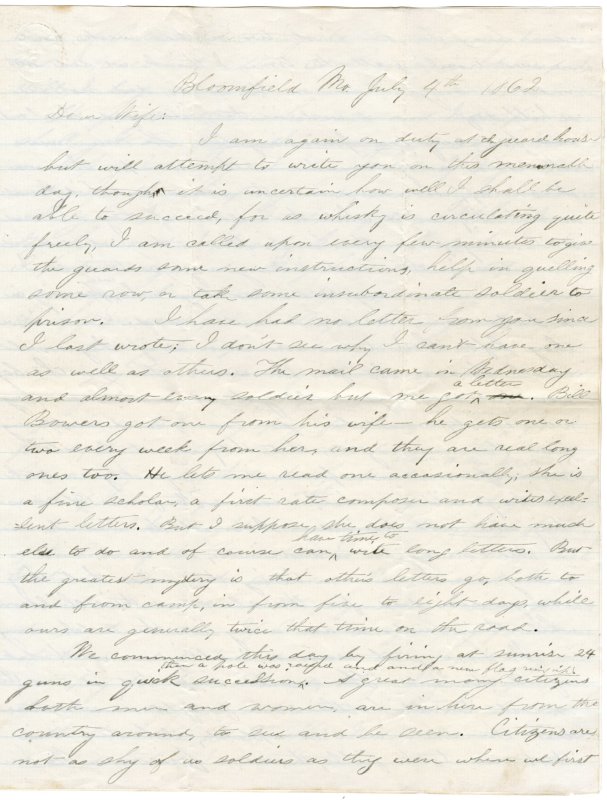 Bloomfield Mo. July 4th 1862
Dear Wife:
I am again on duty at guard house
but will attempt to write you on this memorable
day, though it is uncertain how well I shall be
able to succeed, for as whisky is circulating quite
freely, I am called upon every few minutes to give
the guards some new instructions, help in quelling
some row, or take some insubordinate soldier to
prison. I have had no letter from you since
I last wrote; I don't see why I can't have one
as well as others. The mail came in Wednesday
and almost every soldier but me got a letter. Bill
Bowers got one from his wife — he gets one or
two every week from her, and they are real long
ones too. He lets me read one accasionally, she is
a fine scholar, a first rate composer and writes excel-
lent letters. But I suppose she does not have much
else to do and of course can have time to write long letters. But
the greatest mystery is that others letters go, both to
and from camp, in from five to eight days, while
ours are generally twice that time on the road.
We commenced this day by firing at sunrise 24
guns in quick succession, then a pole was raised and a new flag
A great many citizens
both men and women, are in here from the
country around, to see and be seen. Citizens are
not as shy of us soldiers as they were when we first